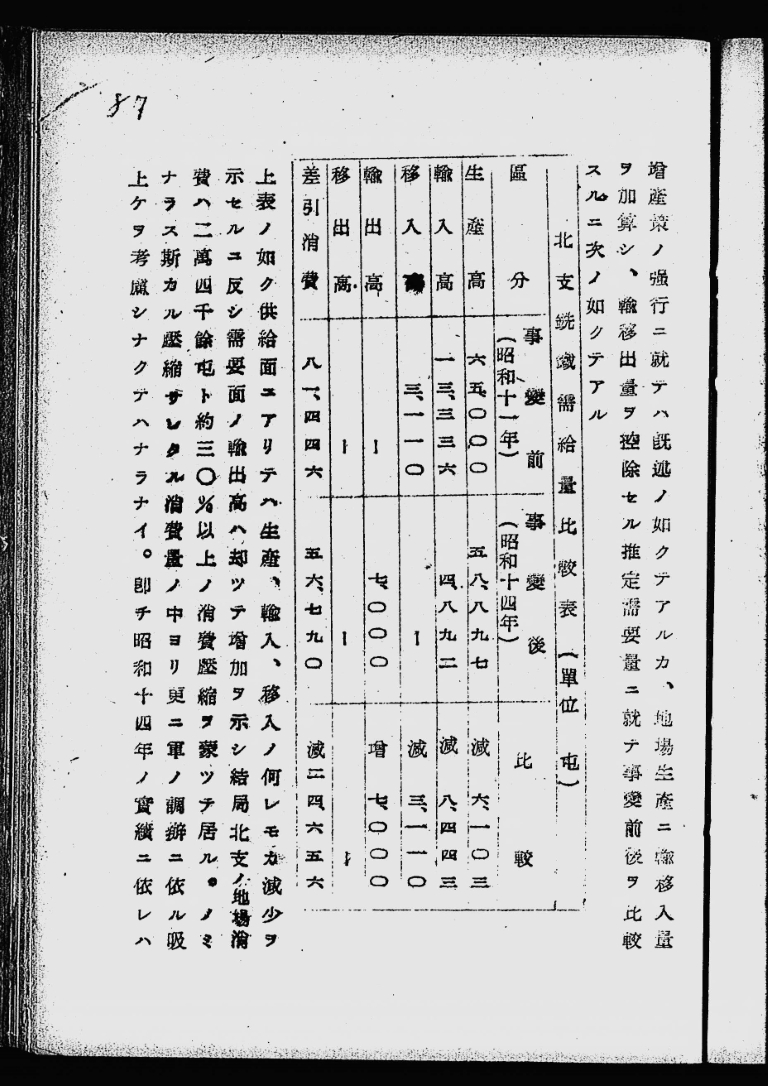 87
增產策ノ强行ニ就テハ既述ノ如クテアルカ、地場生產ニ輸移入量
ヲ加算シ、輸移出量ヲ控除セル推定需要量ニ就テ事變前後ヲ比較
スルニ次ノ如クテアル
北支銑鐵需給量比較表(單位 屯)
區分 事變前(昭和十一年) 事變後(昭和十四年) 比較
生產高 六五、〇〇〇 五八、八九七 減 六、一〇三
輸入高 一三、三三六 四、八九二 減 八、四四三
移入高 三、一一〇 ー 減 三、一一〇
輸出高 ー 七、〇〇〇 增 七、〇〇〇
移出高 ー ー ー
差引消費 八一、四四六 五六、七九〇 減二四、六五六
上表ノ如ク供給面ニアリテハ生產、輸入、移入ノ何レモカ減少ヲ
示セルニ反シ需要面ノ輸出高ハ却ツテ增加ヲ示シ結局北支ノ地場消
費ハ二萬四千餘屯ト約三〇%以上ノ消費壓縮ヲ蒙ツテ居ル。ノミ
ナラス斯カル壓縮サレタル消費量ノ中ヨリ更ニ軍ノ調辨ニ依ル吸
上ケヲ考慮シナクテハナラナイ。卽チ昭和十四年ノ實績ニ依レハ